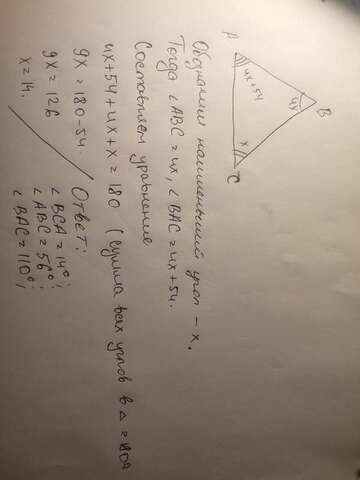 A
B
C
4x+54
4x
x
Обозначим наименьший угол - x.
Тогда ∠ABC = 4x, ∠BAC = 4x+54.
Составляем уравнение
4x+54+4x+x = 180 (сумма всех углов в △ = 180
9x = 180-54.
9x = 126
x = 14.
Ответ:
∠BCA = 14°;
∠ABC = 56°;
∠BAC = 110°;